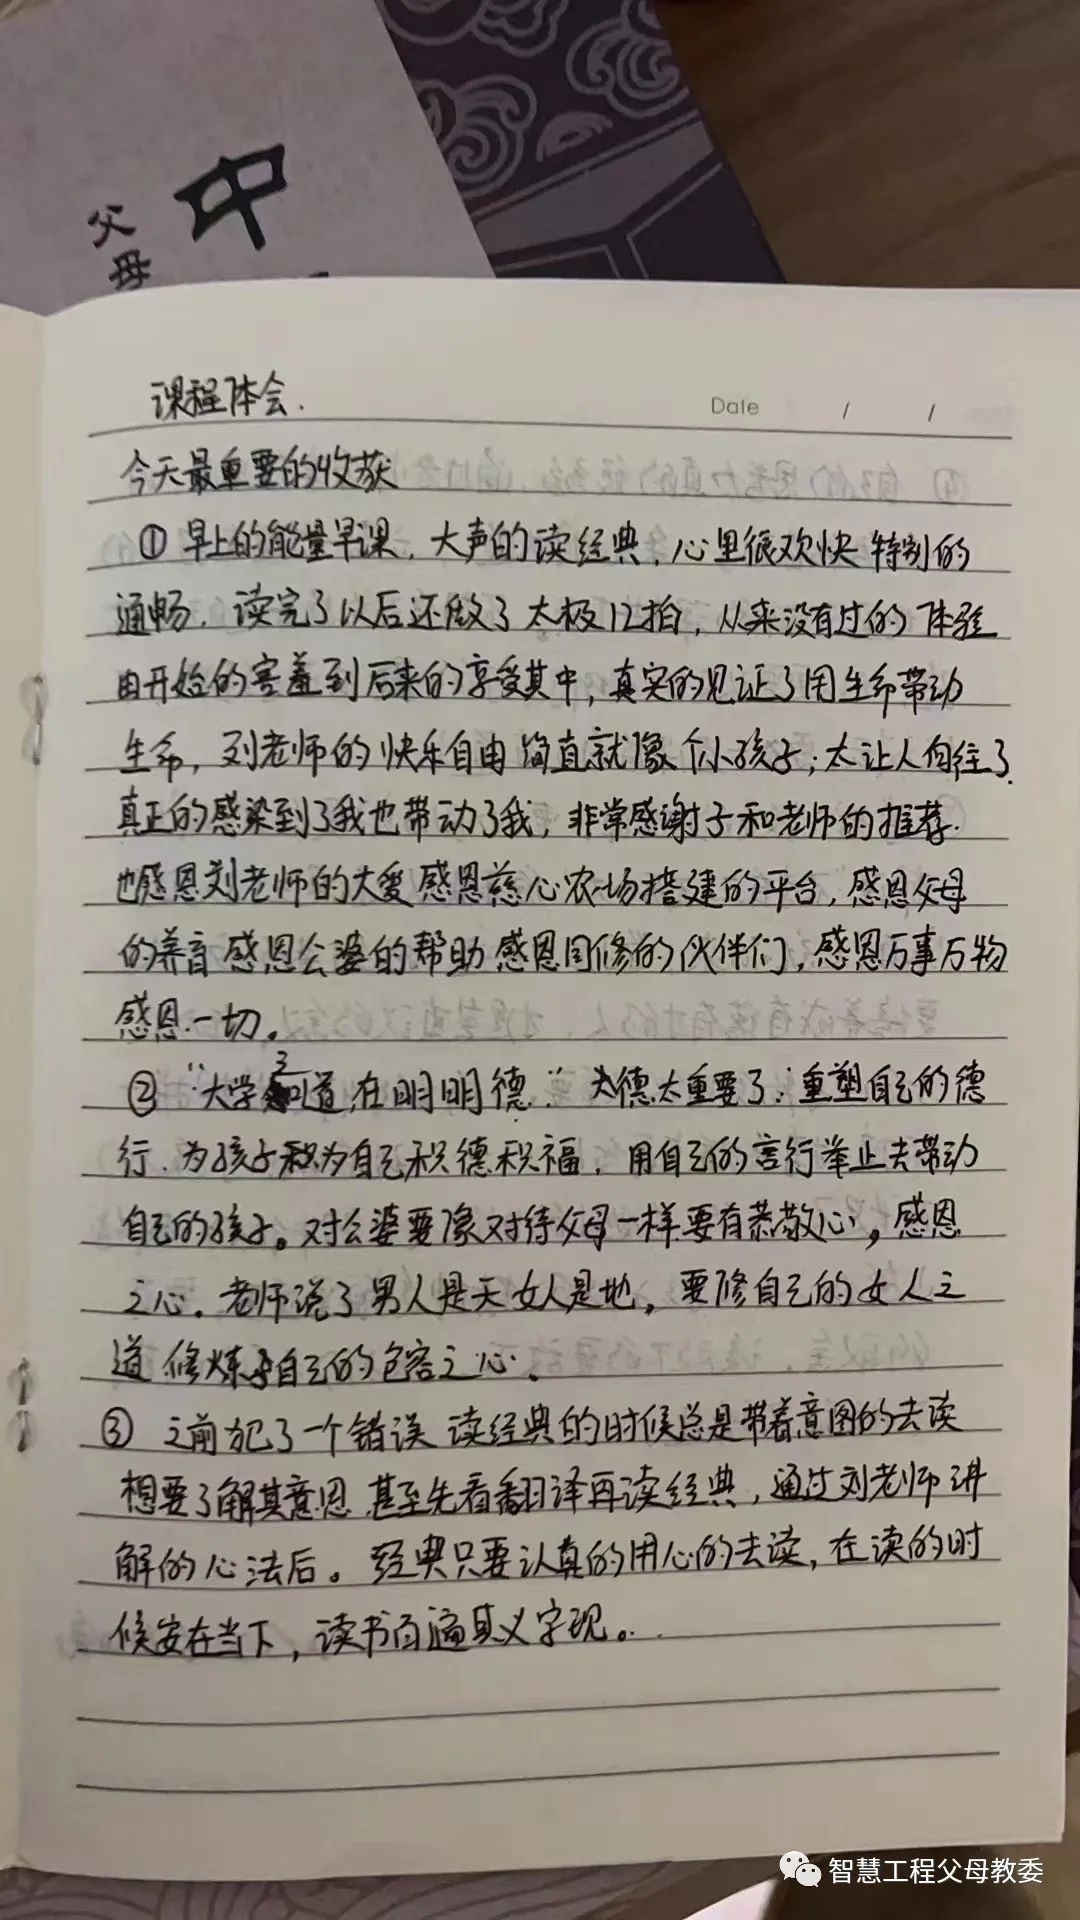 中
父母
课程体会.
Date / /
今天最重要的收获
① 早上的能量早课，大声的读经典，心里很欢快 特别的
通畅，读完了以后还做了太极12拍，从来没有过的体验
由开始的害羞到后来的享受其中，真实的见证了用生命带动
生命，刘老师的快乐自由 简直就像个小孩子；太让人向往了.
真正的感染到了我也带动了我，非常感谢子和老师的推荐.
也感恩刘老师的大爱 感恩慈心农场搭建的平台，感恩父母
的养育 感恩公婆的帮助 感恩同修的伙伴们，感恩万事万物
感恩一切。
② “大学之道，在明明德” 德太重要了；重塑自己的德
行，为孩子积为自己积德积福，用自己的言行举止去带动
自己的孩子。对公婆要像对待父母一样要有恭敬心，感恩
之心。老师说了男人是天女人是地，要修自己的女人之
道 修炼自己的包容之心.
③ 之前犯了一个错误 读经典的时候总是带着意图的去读
想要了解其意思 甚至先看翻译再读经典，通过刘老师讲
解的心法后。经典只要认真的用心的去读，在读的时
候安在当下，读书百遍其义字现。
智慧工程父母教委